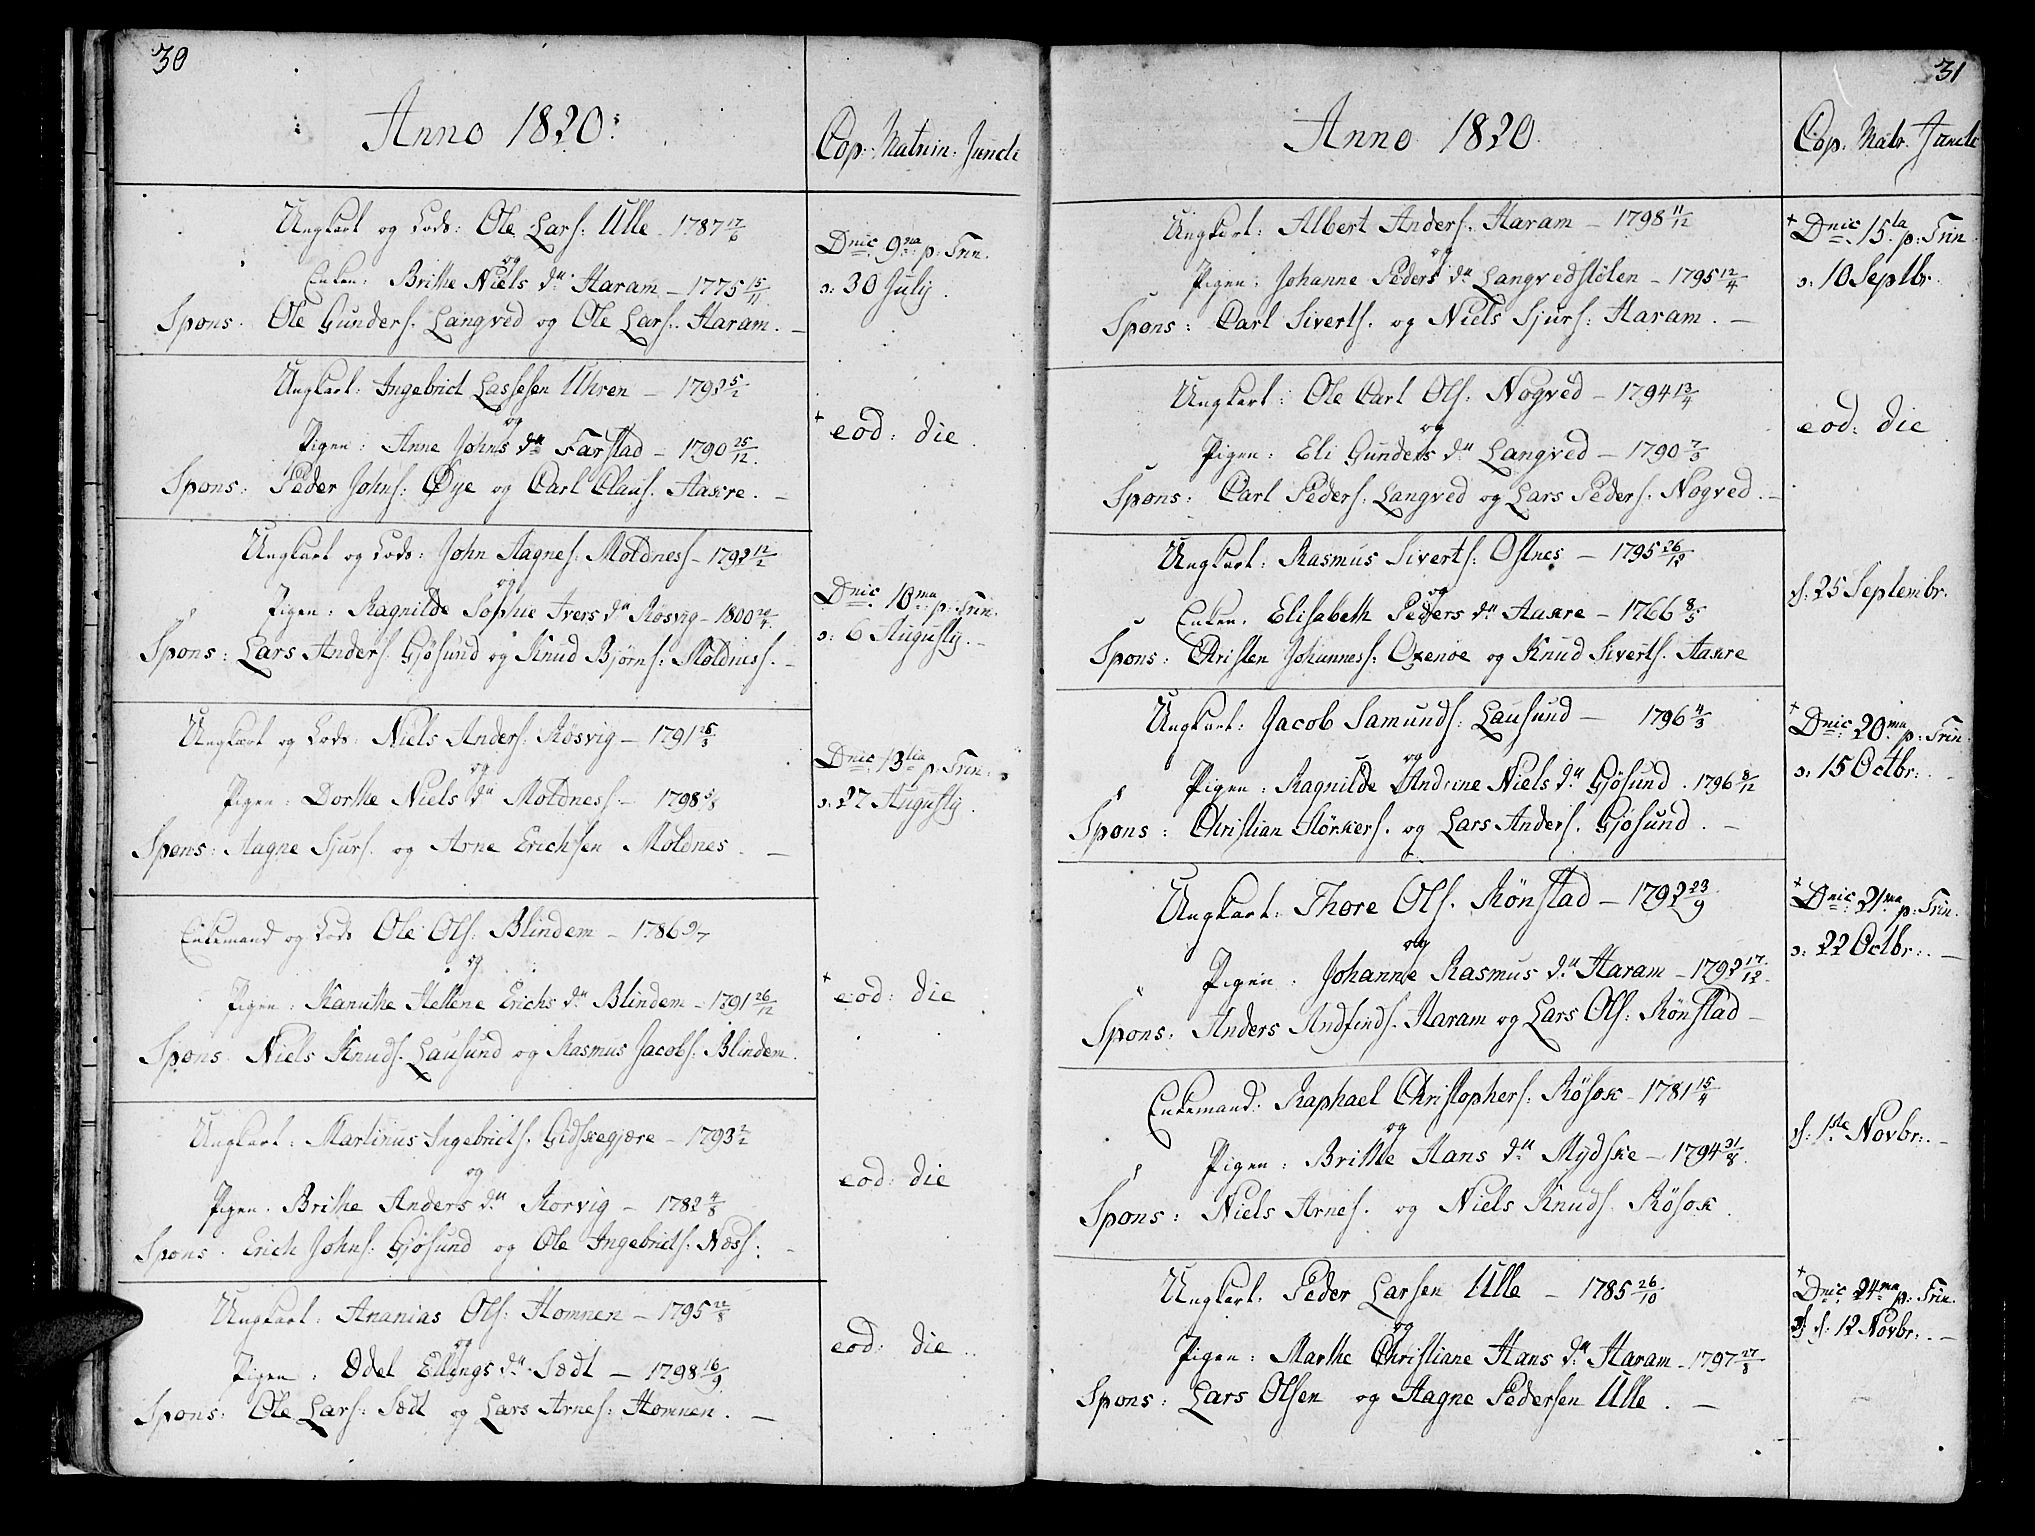 30
Anno 1820:
Cop: Matrim: Juncti
Ungkarl og Lods: Ole Lars: Ulle - 1787 17/6
og
Enken: Brithe Niels dr Haram - 1775 15/11
Spons: Ole Gunders: Langved og Ole Lars: Haram. -
Dnic: 9na p: Trin:
ɔ: 30 July.
Ungkarl: Ingebrict Lassesen Uhren - 1792 5/2
og
Pigen: Anne Johns dr Farstad - 1790 25/12.
Spons: Peder Johns: Øye og Carl Claus: Aakre. -
+ eod: die.
Ungkarl og Lods: John Aagnes: Moldness - 1792 12/2
og
Pigen: Ragnilde Sophie Ivers dr Rosvig - 1800 29/4.
Spons: Lars Anders: Gjøsund og Knud Bjørns: Moldness. -
Dnic: 10ma p: Trin:
ɔ: 6 Augusty. -
Ungkarl og Lods: Niels Anders: Røsvig - 1791 25/3
og
Pigen: Dorthe Niels dr Moldness - 1798 5/8
Spons: Aagne Sjurs: og Arne Erichsen Moldnes. -
Dnic: 13tia p: Trin:
ɔ: 27 Augusty.
Enkemand og Lods Ole Ols: Blindem - 1786 9/7
og
Pigen: Kanuthe Hellene Erichs dr Blindem - 1791 26/12
Spons: Niels Knuds: Lausund og Rasmus Jacobs: Blindem.
+ eod: die
Ungkarl: Martinus Ingebricts: Gidskegjære - 1793 2/2
og
Pigen: Brithe Anders dr Rorvig - 1782 4/8
Spons: Erich Johns: Gjøsund og Ole Ingebricts: Næss: -
eod: die
Ungkarl: Ananias Ols: Homnen - 1795 22/8
og
Pigen: Odel Ellings dr Sædt - 1798 16/9
Spons: Ole Lars: Sædt og Lars Arnes: Homnen. -
eod: die..
31
Anno 1820
Cop: Matr: Juncti
Ungkarl: Albert Anders: Haram - 1798 11/12
og
Pigen: Johanne Peders dr Langvedstølen - 1795 12/4
Spons: Carl Siverts: og Niels Sjurs: Haram. -
+ Dnic: 15ta p: Trin:
ɔ: 10 Septbr.
Ungkarl: Ole Carl Ols: Nogved - 1794 13/4
og
Pigen: Eli Gunders dr Langved - 1790 7/3
Spons: Carl Peders: Langved og Lars Peders: Nogved. -
eod: die
Ungkarl: Rasmus Siverts: Ostnes - 1795 26/12
og
Enken: Elisabeth Peders dr Aakre - 1766 8/5
Spons: Christen Johanness: Oxenoe og Knud Siverts: Aakre
d: 25 Septembr.
Ungkarl: Jacob Samunds: Lausund - 1796 4/3
og
Pigen: Ragnilde Andrine Niels dr Gjøsund. 1796 8/12
Spons: Christian Størkers: og Lars Anders: Gjøsund. -
+ Dnic: 20ma p: Trin:
ɔ: 15 Octbr: -
Ungkarl: Thore Ols: Rønstad - 1792 23/9
og
Pigen: Johanne Rasmus dr Haram - 1792 17/12.
Spons: Anders Andfinds: Haram og Lars Ols: Rønstad -
+ Dnic: 21ma p: Trin:
ɔ: 22 Octbr: -
Enkemand: Raphael Christophers: Røsok - 1781 15/4
og
Pigen: Brithe Hans dr Mydske - 1794 31/8.
Spons: Niels Arnes: og Niels Knuds: Røsok.
d: 1ste Novbr: -
Ungkarl: Peder Larsen Ulle - 1785 26/10
og
Pigen: Marthe Christiane Hans dr Haram - 1797 27/3
Spons: Lars Olsen og Aagne Pedersen Ulle. -
+ Dnic: 24ma p: Trin:
d: 12 Novbr: -